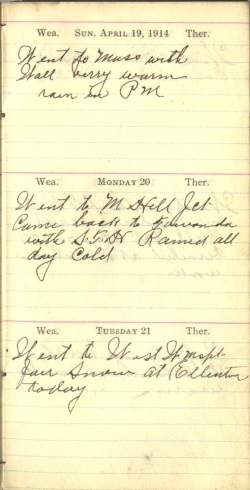 Wea. SUN. APRIL 19, 1914 Ther.
Went to Mass with
Wall very warm
rain in PM
Wea. MONDAY 20 Ther.
Went to M Hall Jct
Came back to Towanda
with S.F.H Rained all
day Cold
Wea. TUESDAY 21 Ther.
Went to West Wmspt
fair Snow at Ellenton
today